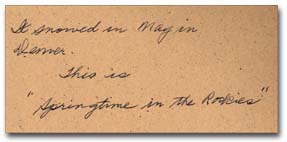 It snowed in May in
Denver.
This is
"Springtime in the Rockies"